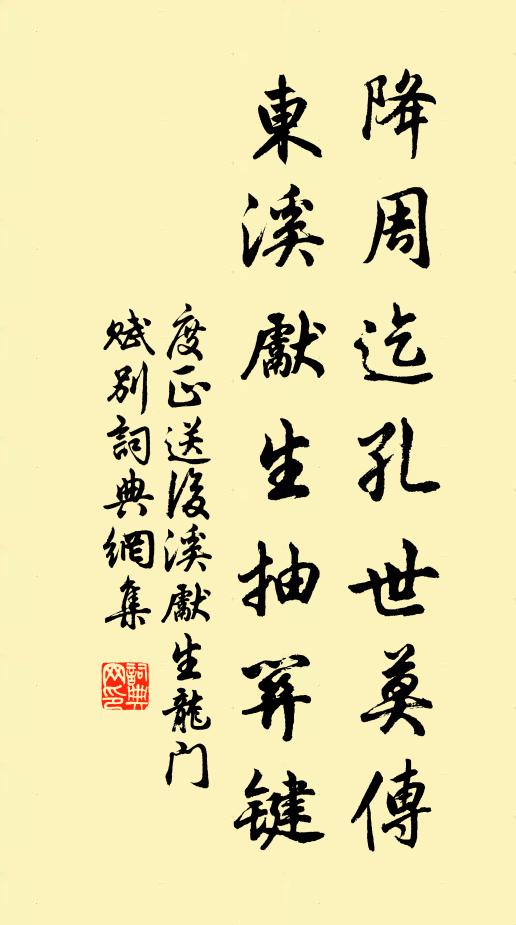 降周迄孔世莫傳
東溪獻生抽關鍵
度正送後溪獻生龍门
賦別詞典網集
詞典网印